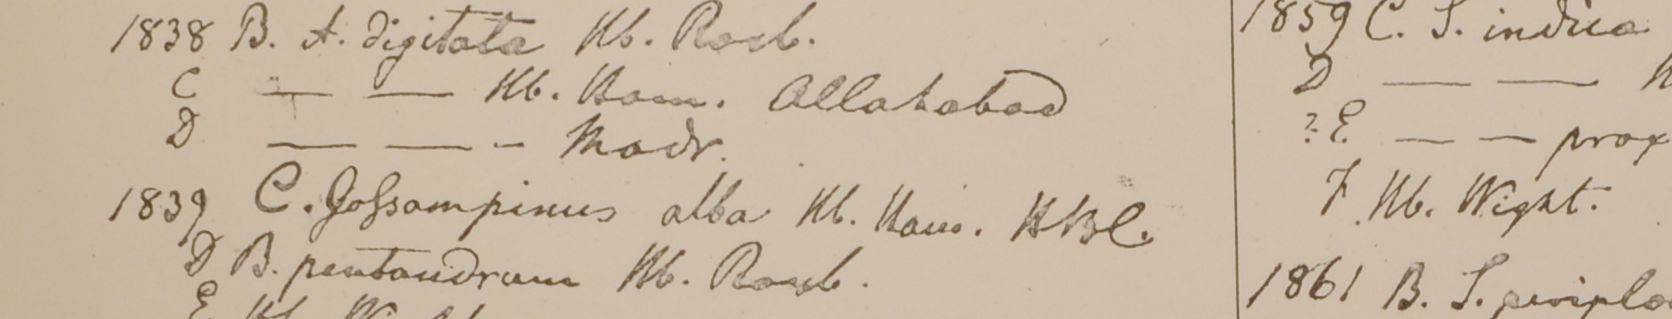 1838 B. A. digitata Hb. Roxb.
C — — Hb. Ham. Allahabad
D — — - Madr.
1839 C. Gossampinus alba Hb. Ham. HBC.
D B. pentandrum Hb. Roxb.
E Hb.
1859 C. S. indica
D — — H
? E — — prox
F Hb. Wight.
1861 B. S.